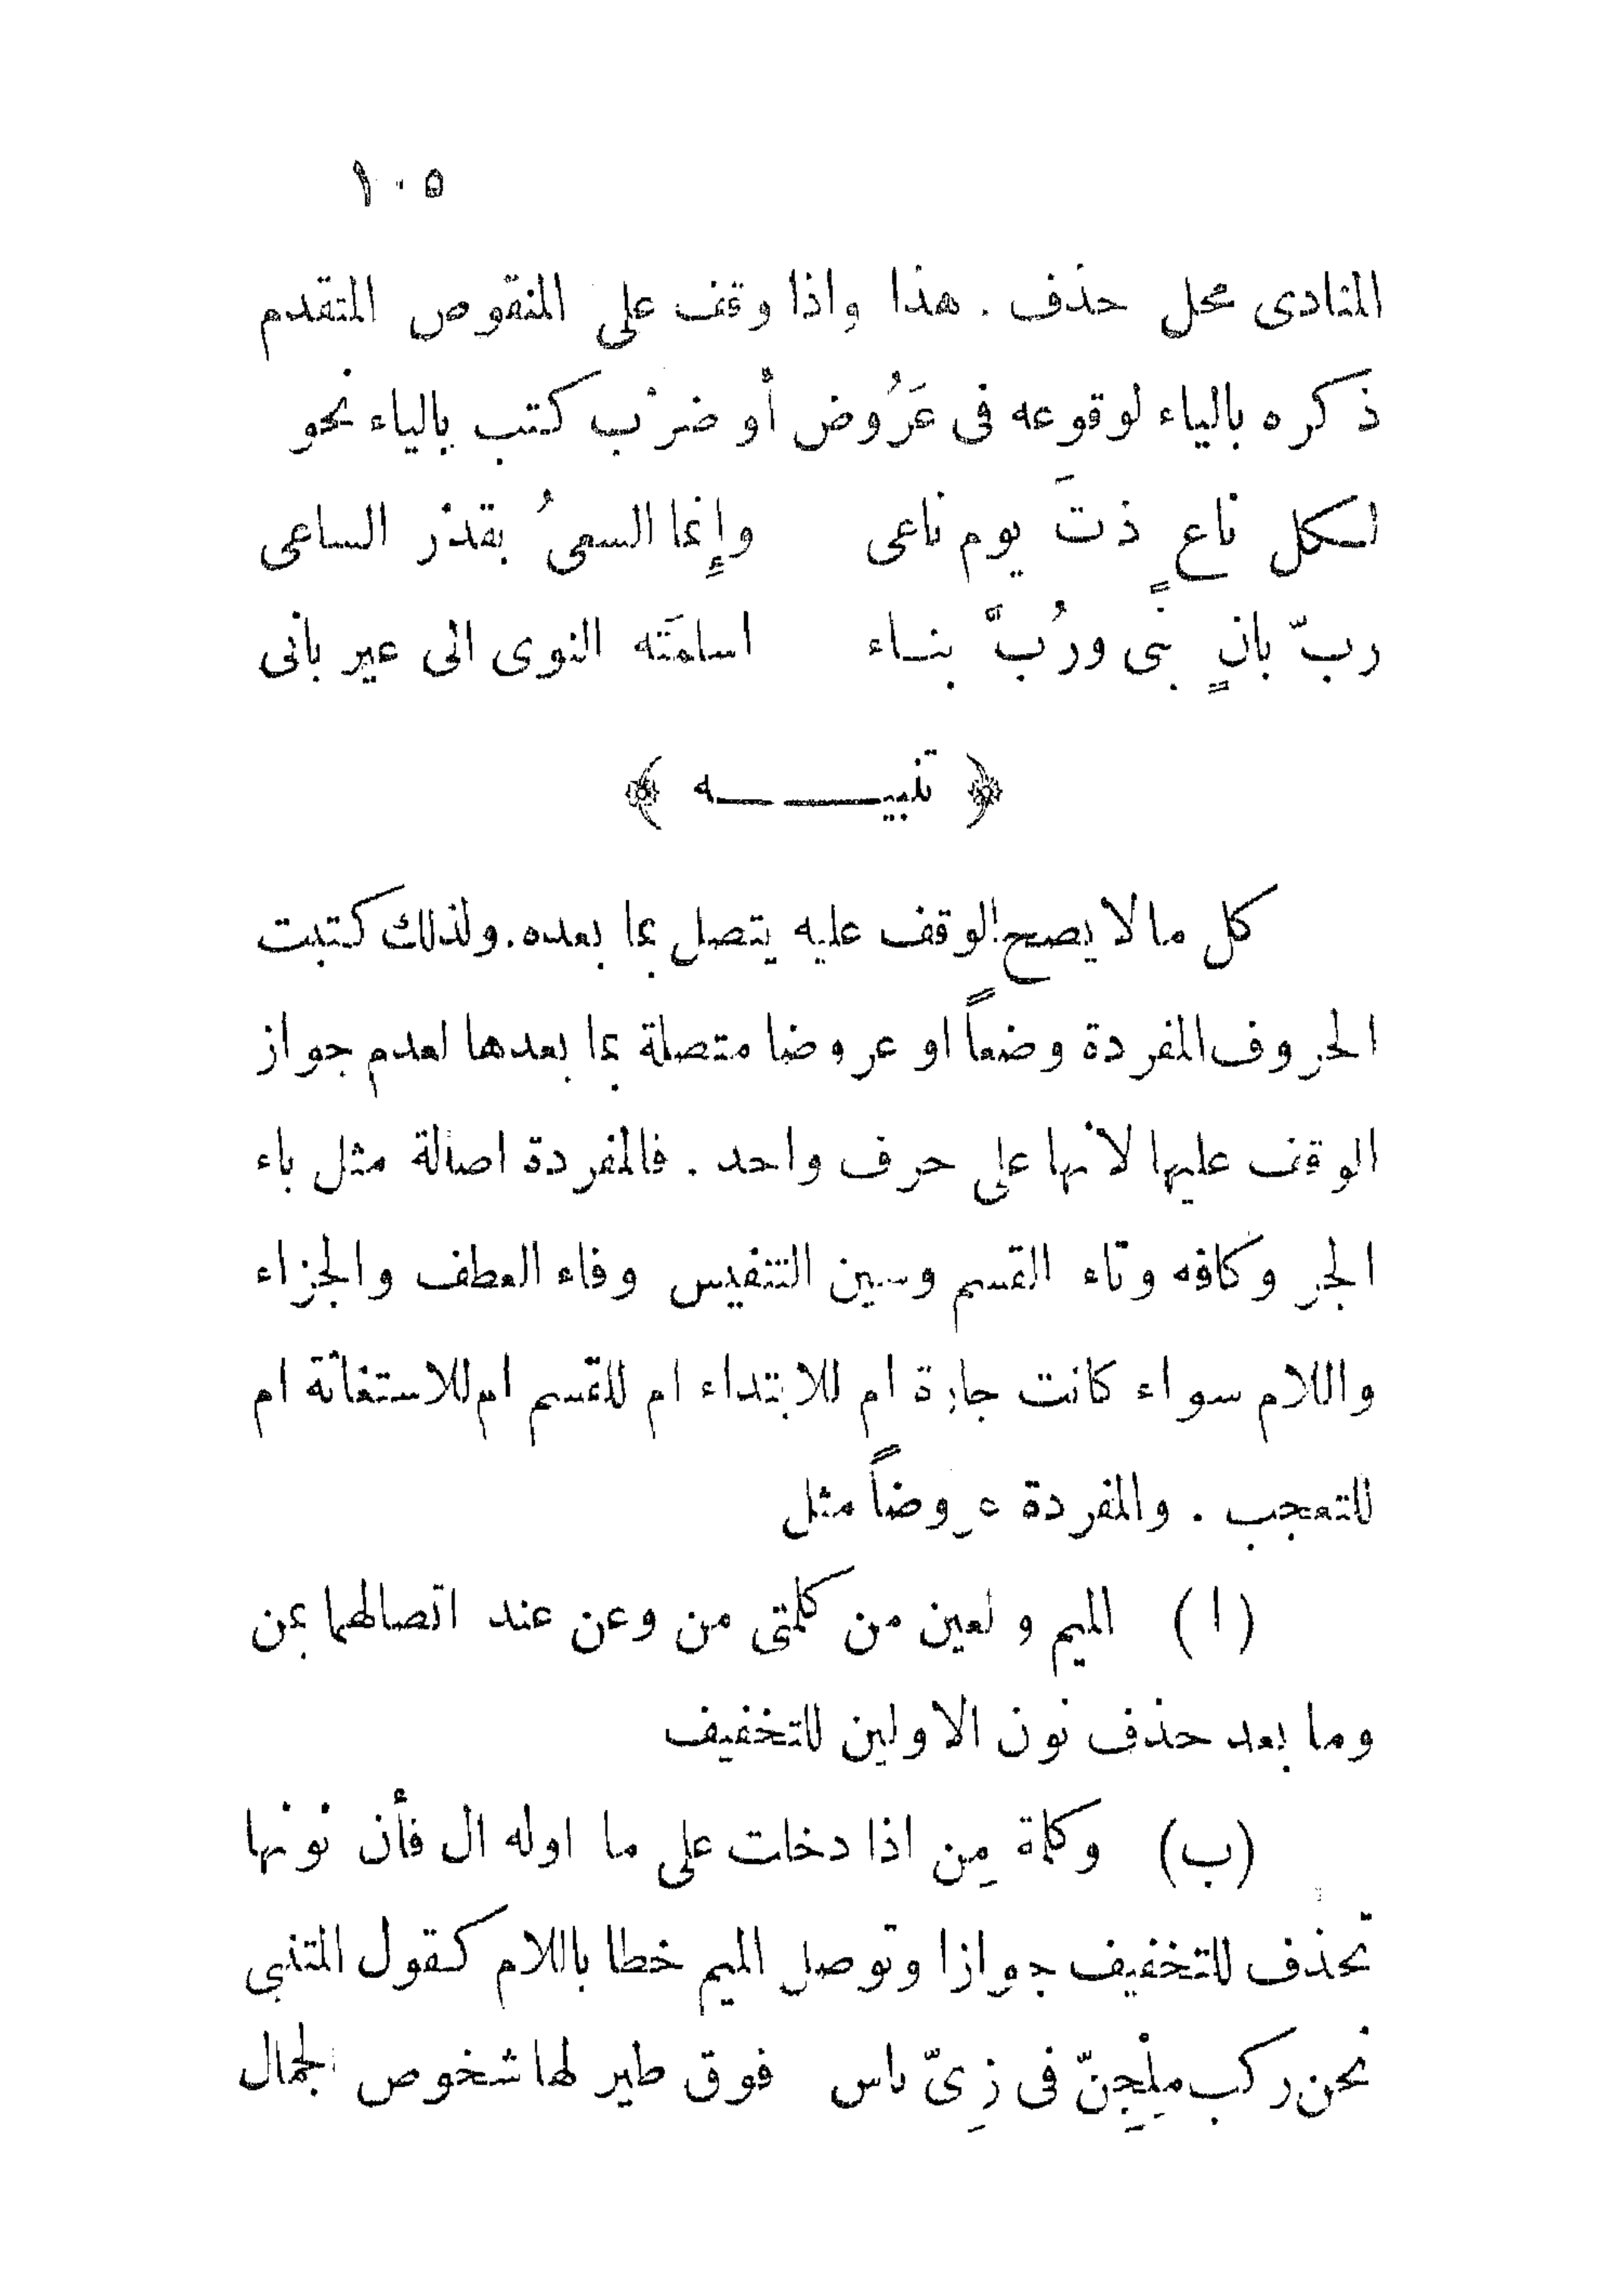 ١٠٥
المنادى محل حذف . هذا واذا وقف على المنقوص المتقدم
ذكره بالياء لوقوعه فى عَرُوض أو ضرْب كتب بالياء نحو
لكل ناعٍ ذتَ يوم ناعى وإنما السعىُ بقدْر الساعى
ربّ بانٍ بنى ورُبَّ بناء اسلمَته النوى الى عير بانى
﴿ تنبيـــــه ﴾
كل ما لا يصح الوقف عليه يتصل بما بعده . ولذلك كتبت
الحروف المفردة وضعاً او عروضا متصلة بما بعدها لعدم جواز
الوقف عليها لانها على حرف واحد . فالمفردة اصالة مثل باء
الجر وكافه وتاء القسم وسين التنفيس وفاء العطف والجزاء
واللام سواء كانت جارة ام للابتداء ام للقسم ام للاستغاثة ام
للتعجب . والمفردة عروضاً مثل
(ا) الميم و لعين من كلمتى من وعن عند اتصالهما بمن
وما بعد حذف نون الاولين للتخفيف
(ب) وكلمة مِن اذا دخلت على ما اوله ال فأن نونها
تحذف للتخفيف جوازا وتوصل الميم خطا باللام كقول المتنبى
نحن ركب مِلْجِنّ فى زِىّ ناس فوق طير لها شخوص الجمال